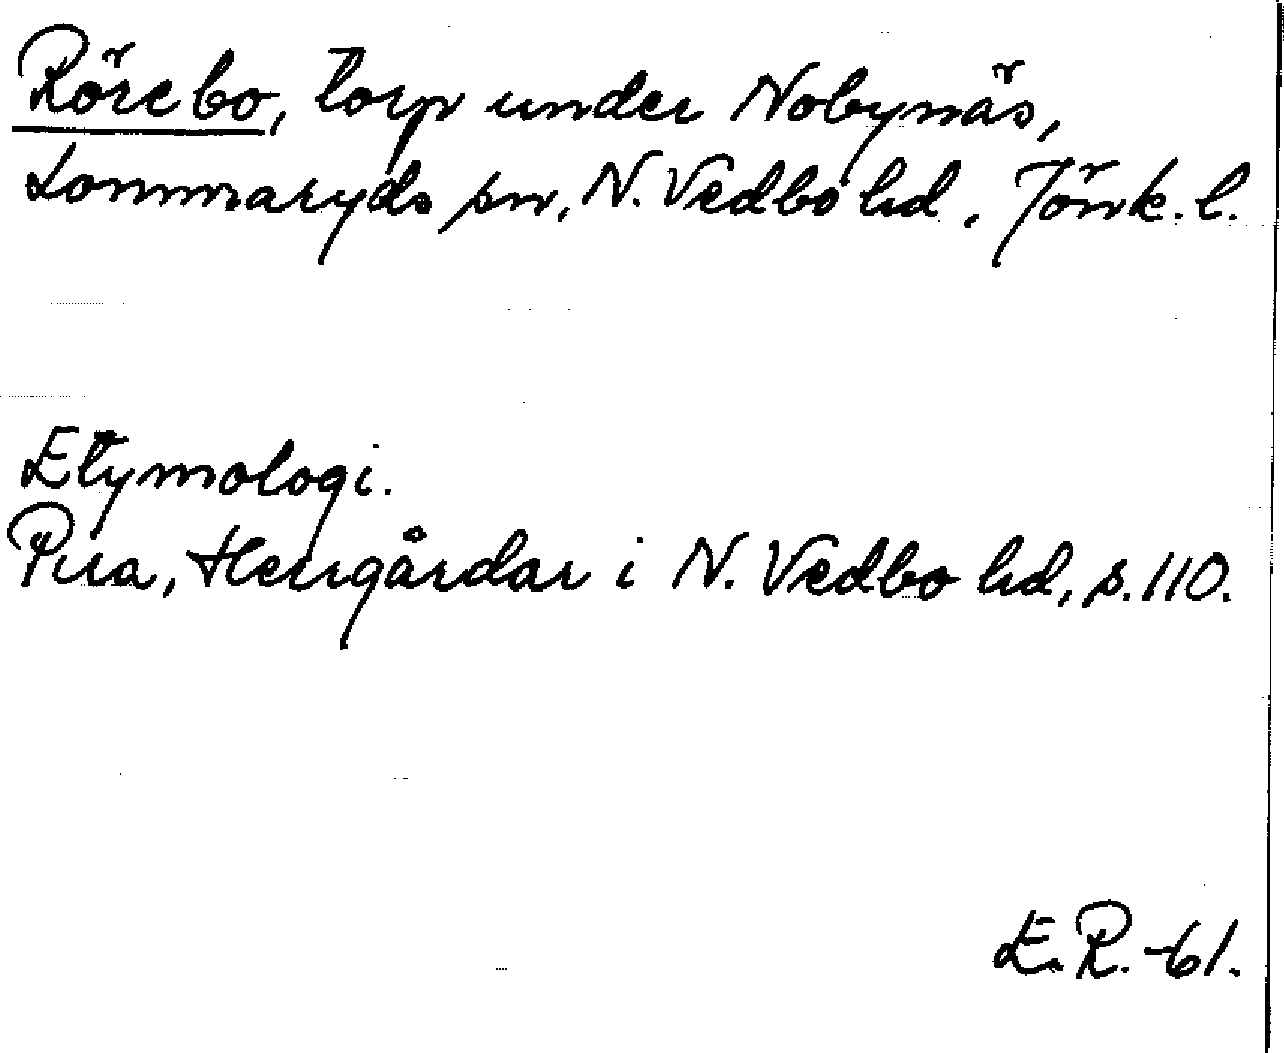 Rörebo, torp under Nobynäs,
Lommaryds sn, N. Vedbo hd, Jönk. l.
Etymologi.
Pira, Herrgårdar i N. Vedbo hd, s. 110.
E. R. -61.